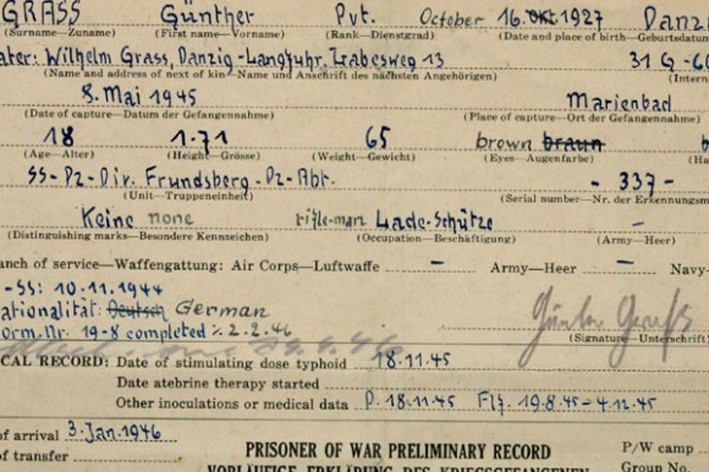 GRASS Günther Pvt. October 16. Okt. 1927 Danzi
(Surname—Zuname) (First name—Vorname) (Rank—Dienstgrad) (Date and place of birth—Geburtsdatum
ater: Wilhelm Grass, Danzig-Langfuhr, Labesweg 13 31 G -60
(Name and address of next of kin—Name und Anschrift des nächsten Angehörigen) (Intern
8. Mai 1945 Marienbad
(Date of capture—Datum der Gefangennahme) (Place of capture—Ort der Gefangennahme)
18 1.71 65 brown braun
(Age—Alter) (Height—Grösse) (Weight—Gewicht) (Eyes—Augenfarbe) (Ha
SS-Pz-Div. Frundsberg-Pz-Abt. - 337 -
(Unit—Truppeneinheit) (Serial number—Nr. der Erkennungsm
Keine none rifle-man Lade-Schütze -
(Distinguishing marks—Besondere Kennzeichen) (Occupation—Beschäftigung) (Army—Heer)
anch of service—Waffengattung: Air Corps—Luftwaffe - Army—Heer - Navy-
-SS: 10.11.1944
ationalität: Deutsch German
orm. Nr. 19-8 completed 2.2.46
(Signature—Unterschrift)
CAL RECORD: Date of stimulating dose typhoid 18.11.45
Date atebrine therapy started
Other inoculations or medical data P. 18.11.45 Flf. 19.8.45-4.12.45
of arrival 3. Jan. 1946
of transfer
PRISONER OF WAR PRELIMINARY RECORD P/W camp
VORLÄUFIGE ERKLÄRUNG DES KRIEGSGEFANGENEN Group No.